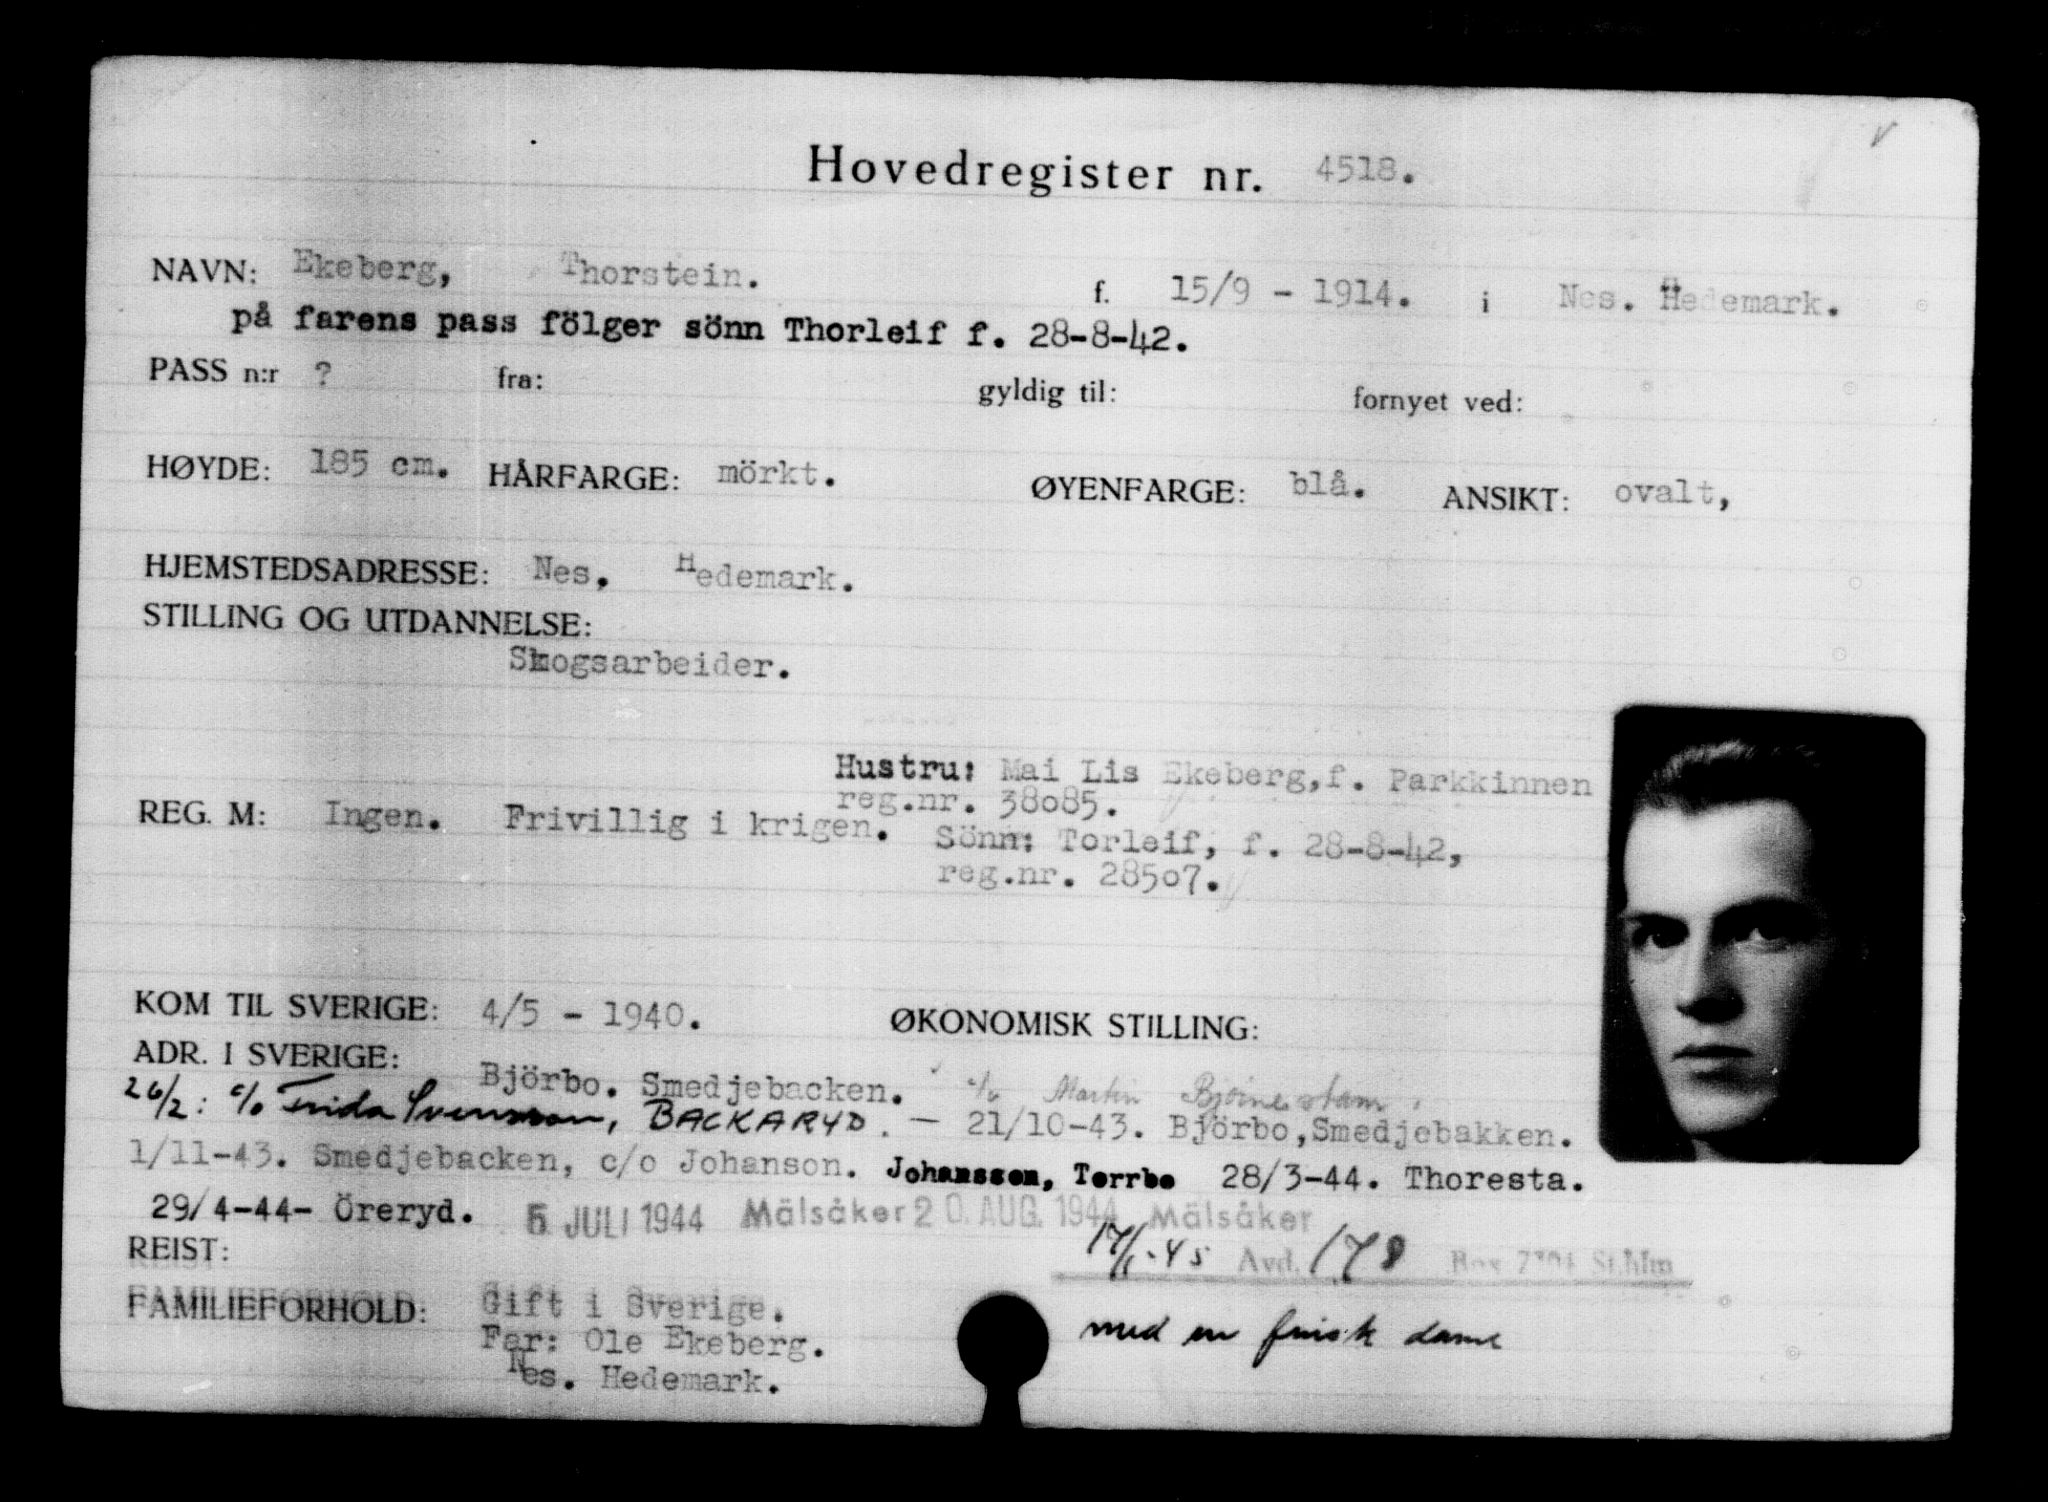 Hovedregister nr. 4518.
NAVN: Ekeberg, Thorstein. f. 15/9 - 1914. i Nes. Hedemark.
på farens pass fölger sönn Thorleif f. 28-8-42.
PASS n:r ? fra: gyldig til: fornyet ved:
HØYDE: 185 cm. HÅRFARGE: mörkt. ØYENFARGE: blå. ANSIKT: ovalt,
HJEMSTEDSADRESSE: Nes. Hedemark.
STILLING OG UTDANNELSE:
Skogsarbeider.
Hustru: Mai Lis Ekeberg, f. Parkkinnen
reg.nr. 38085.
REG. M: Ingen. Frivillig i krigen. Sönn: Torleif, f. 28-8-42,
reg.nr. 28507.
KOM TIL SVERIGE: 4/5 - 1940. ØKONOMISK STILLING:
ADR. I SVERIGE: Björbo. Smedjebacken. c/o Martin Björnestam.
26/2: c/o Frida Svensson, BACKARYD. - 21/10-43. Björbo, Smedjebakken.
1/11-43. Smedjebacken, c/o Johanson. Johansson, Torrbo 28/3-44. Thoresta.
29/4-44- Öreryd. 5 JULI 1944 Mälsåker 20. AUG. 1944 Mälsåker
REIST: 17/1-45 Avd. 178 Box 7704 St.hlm
FAMILIEFORHOLD: Gift i Sverige. med en finsk dame
Far: Ole Ekeberg.
Nes. Hedemark.